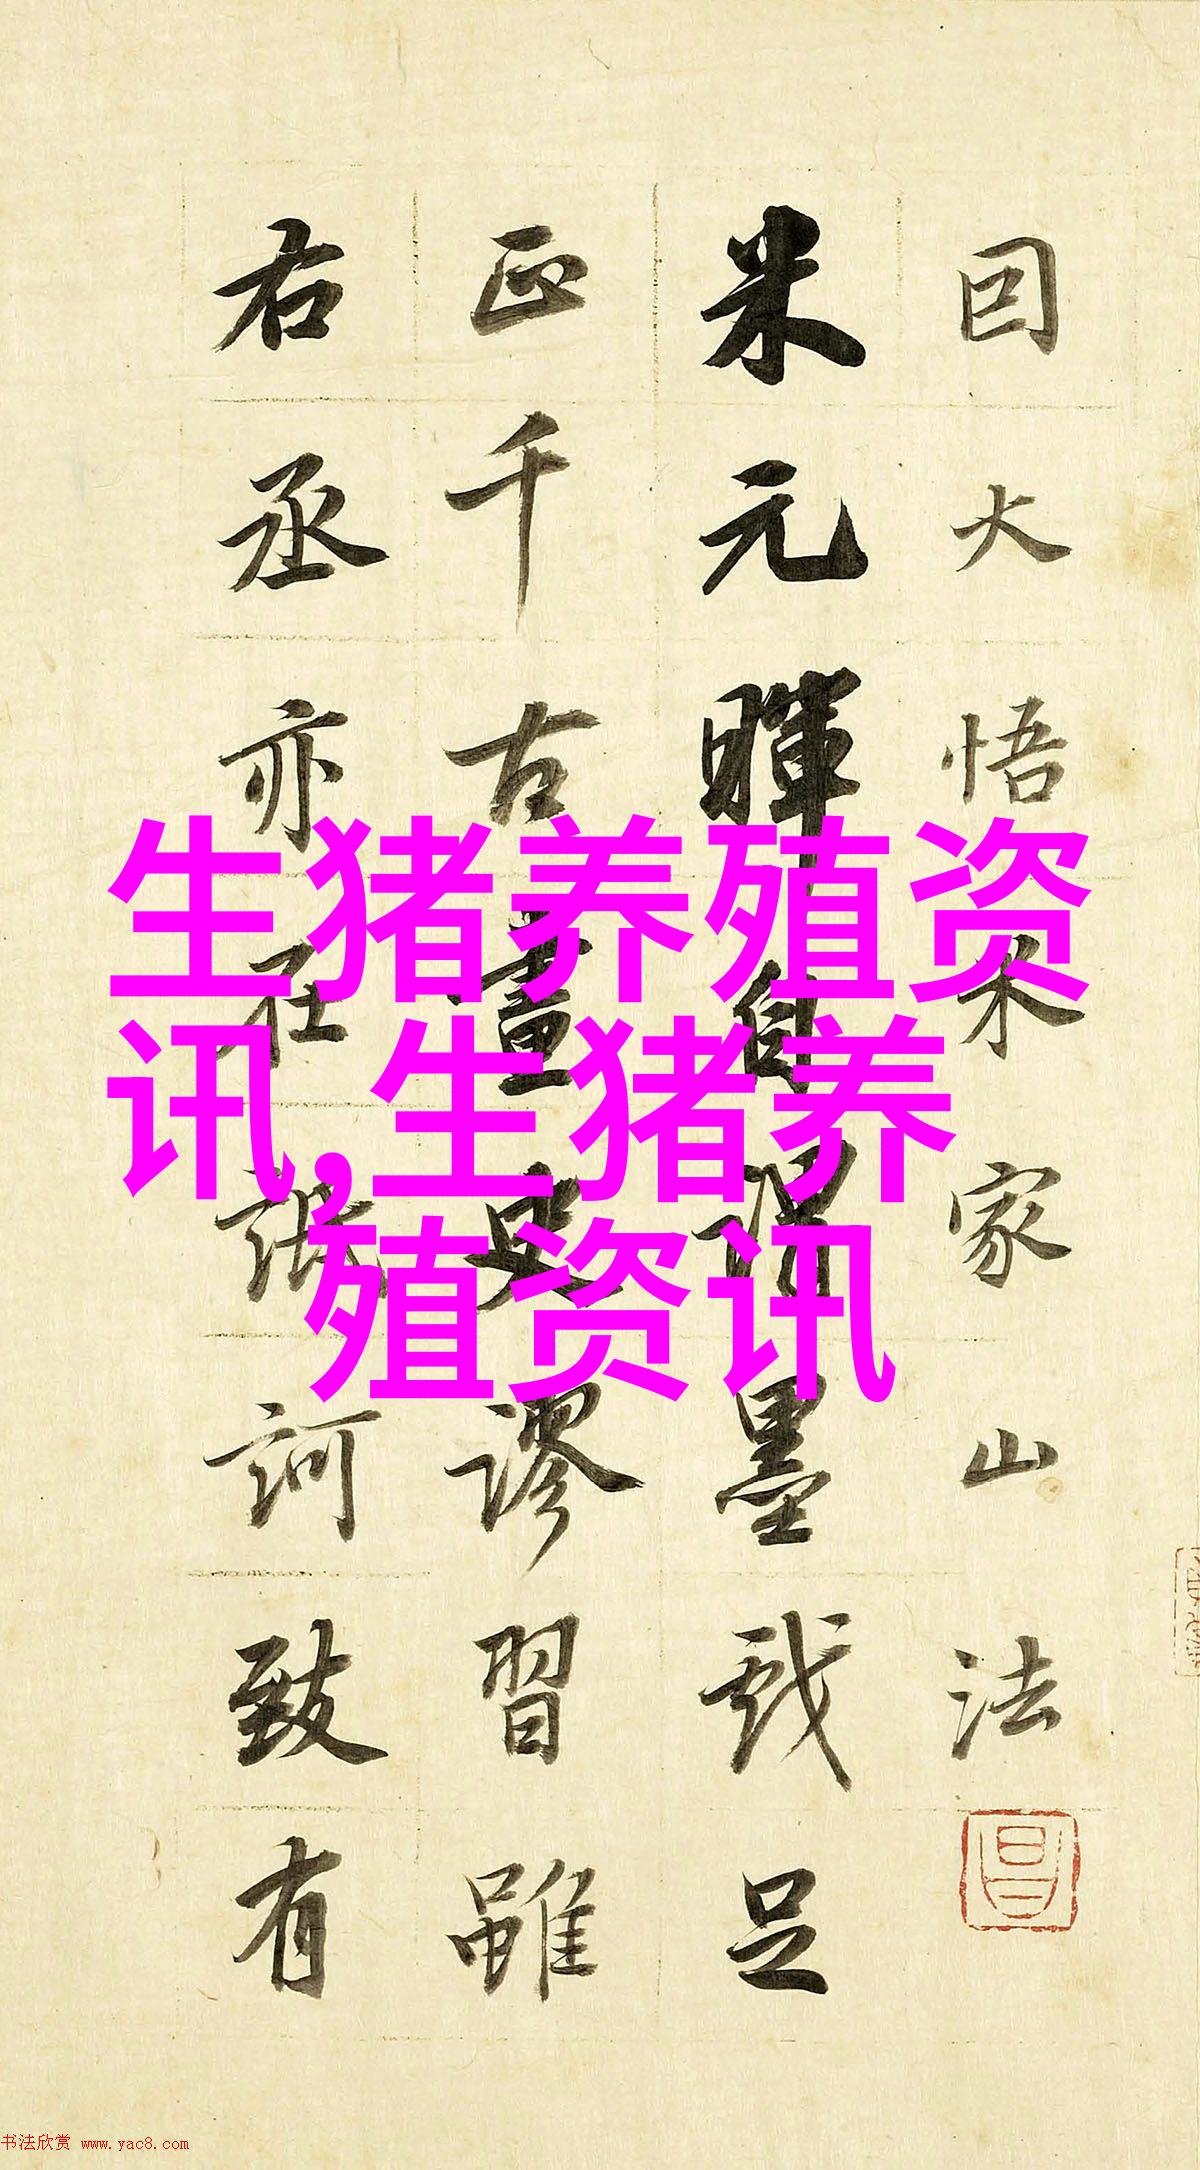 因大悟米家山法
米元暉自謂墨戲足
正千古畫史謬習雖
右丞亦在詆訶致有
生猪养殖资
讯,生猪养
殖资讯
书法欣赏 www.yac8.com